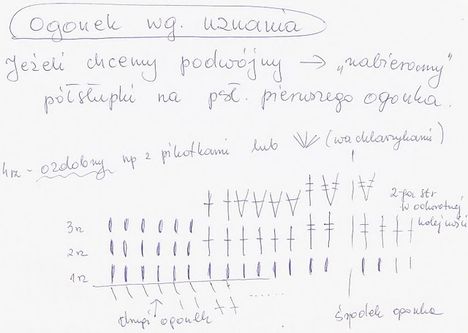 Ogonek wg. uznania
Jeżeli chcemy podwójny → „nabieramy”
półsłupki na psł. pierwszego ogonka.
4rz - ozdobny np z pikotkami lub (wachlarzykami)
2-ga str
w odwrotnej
kolejności
3rz
2rz
1rz
drugi ogonek
środek ogonka